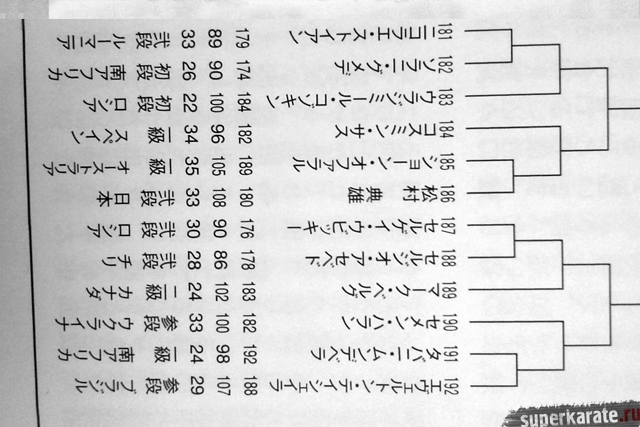 181 ニコラエ・ストイアン 179 89 33 弐段 ルーマニア
182 ソラニ・グメデ 174 90 26 初段 南アフリカ
183 ウラジーミル・コンキン 184 100 22 初段 ロシア
184 コスミン・サス 182 96 34 一級 スペイン
185 ジョーン・オファラル 189 105 35 一級 オーストラリア
186 松村 典雄 180 108 33 弐段 日本
187 セルゲイ・ウビッキー 176 90 30 弐段 ロシア
188 セルジオ・アセベド 178 88 28 弐段 チリ
189 マーク・ベルゲ 183 102 24 一級 カナダ
190 セメン・ハラン 182 100 33 参段 ウクライナ
191 タバニ・ムンデベラ 192 98 24 一級 南アフリカ
192 エヴェルトン・テイシェイラ 188 107 29 参段 ブラジル
superkarate.ru